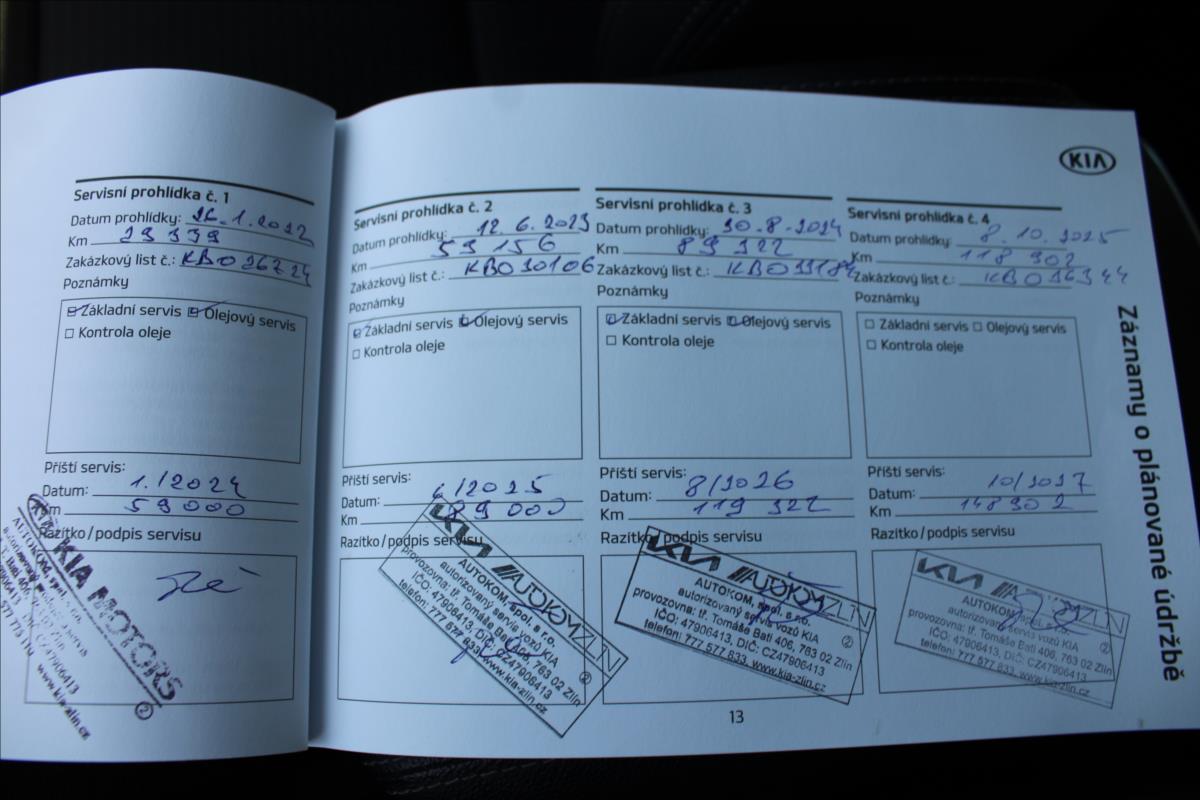 KIA
Servisní prohlídka č. 1
Datum prohlídky:
Km
Zakázkový list č.: KBO26724
Poznámky
Základní servis Olejový servis
Kontrola oleje
Příští servis:
Datum: 1./2024
Km 59000
Razítko/podpis servisu
KIA MOTORS
www.kia-zlin.cz
Servisní prohlídka č. 2
Datum prohlídky: 12.6.2023
Km 59156
Zakázkový list č.: KBO30106
Poznámky
Základní servis Olejový servis
Kontrola oleje
Příští servis:
Datum: 6/2025
Km 89000
Razítko/podpis servisu
KIA AUTOKOMZLIN
AUTOKOM, spol. s r.o.
autorizovaný servis vozů KIA
provozovna: tř. Tomáše Bati 406, 763 02 Zlín
IČO: 47906413, DIČ: CZ47906413
telefon: 777 577 833, www.kia-zlin.cz
Servisní prohlídka č. 3
Datum prohlídky: 30.8.2024
Km 89322
Zakázkový list č.:
Poznámky
Základní servis Olejový servis
Kontrola oleje
Příští servis:
Datum: 8/2026
Km 119322
Razítko/podpis servisu
KIA AUTOKOMZLIN
AUTOKOM, spol. s r.o.
autorizovaný servis vozů KIA
provozovna: tř. Tomáše Bati 406, 763 02 Zlín
IČO: 47906413, DIČ: CZ47906413
telefon: 777 577 833, www.kia-zlin.cz
Servisní prohlídka č. 4
Datum prohlídky: 8.10.2025
Km 118902
Zakázkový list č.: KBO36344
Poznámky
Základní servis Olejový servis
Kontrola oleje
Příští servis:
Datum: 10/2027
Km 148902
Razítko/podpis servisu
KIA AUTOKOMZLIN
AUTOKOM, spol. s r.o.
autorizovaný servis vozů KIA
provozovna: tř. Tomáše Bati 406, 763 02 Zlín
IČO: 47906413, DIČ: CZ47906413
telefon: 777 577 833, www.kia-zlin.cz
Záznamy o plánované údržbě
13